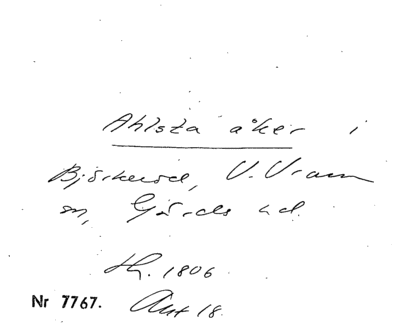 Ahlsta åker i
Björkeröd, V. Vram
sn, Gärds hd.
Hh. 1806.
Nr 7767. Akt 18.